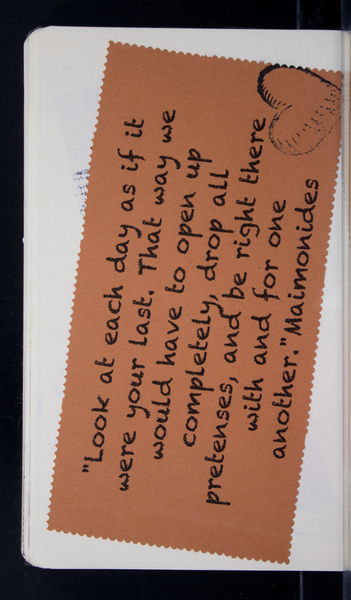 "Look at each day as if it
were your last. That way we
would have to open up
completely, drop all
pretenses, and be right there
with and for one
another." Maimonides